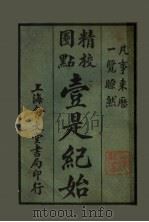 凡事来历
一覧瞭然
精校
圈點
壹是紀始
上海
書局印行